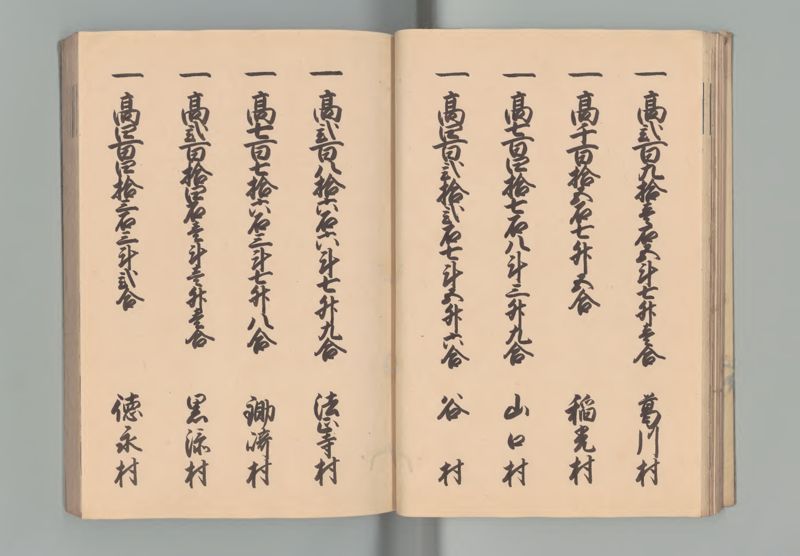 一高弐百九拾壱石五斗七升壱合 葛川村
一高千百拾五石七升五合 稲光村
一高七百四拾七石八斗三升九合 山口村
一高四百弐拾弐石七斗五升六合 谷村
一高弐百八拾六石六斗七升九合 法正寺村
一高七百七拾六石三斗七升八合 鋤崎村
一高弐百拾四石壱斗壱升壱合 黒添村
一高四百四拾三石三斗弐合 徳永村